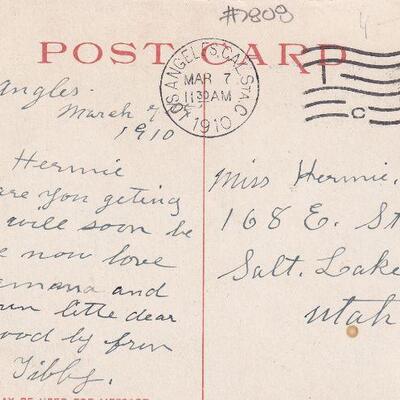 #7808
4
POST CARD
LOS ANGELES, CAL. STA. C
MAR 7
11 30 AM
1910
C
Angles.
March 7
1910
Hermie
are you geting
will soon be
now love
and
little dear
ood by from
Tibby.
Miss Hermie.
168 E. St
Salt. Lake
Utah
AY BE USED FOR MESSAGE